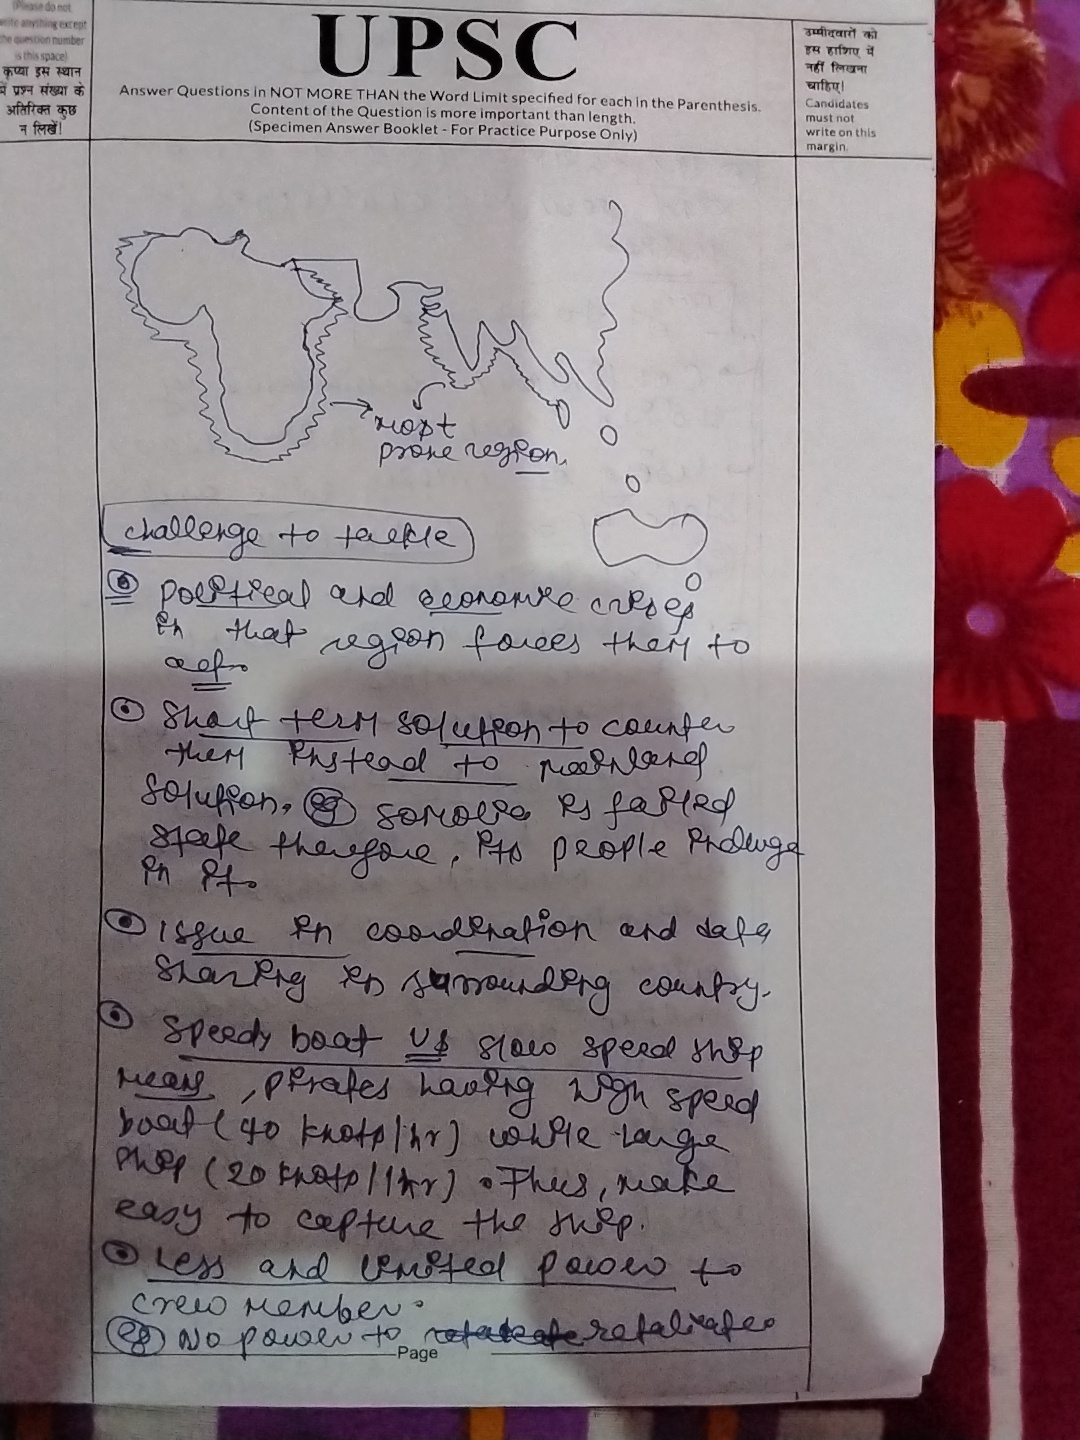 (Please do not
write anything except
the question number
is this space)
कृप्या इस स्थान
में प्रश्न संख्या के
अतिरिक्त कुछ
न लिखें!
UPSC
Answer Questions in NOT MORE THAN the Word Limit specified for each in the Parenthesis.
Content of the Question is more important than length.
(Specimen Answer Booklet - For Practice Purpose Only)
उम्मीदवारों को
इस हाशिए में
नहीं लिखना
चाहिए!
Candidates
must not
write on this
margin.
most
prone region.
challenge to tackle
political and economic crises
in that region forces them to
act.
Short term solution to counter
them instead to mainland
solution. eg Somalia is failed
state therefore, its people indulge
in it.
Issue in coordination and data
sharing in surrounding country.
Speedy boat vs slow speed ship
means, pirates having high speed
boat (40 knots/hr) while large
ship (20 knots/1hr). Thus, make
easy to capture the ship.
Less and limited power to
crew member.
eg No power to retaliate.
Page